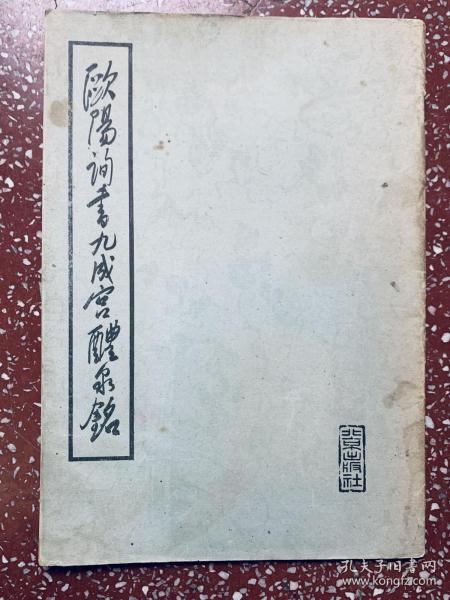 歐陽询書九成宮醴泉銘
北京出版社
孔夫子旧书网
kongfz.com